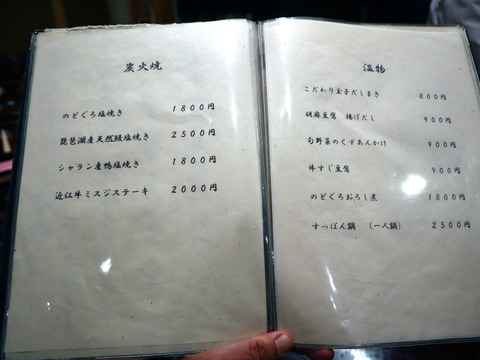 炭火焼
のどぐろ塩焼き 1800円
琵琶湖産天然鰻塩焼き 2500円
シャラン産鴨塩焼き 1800円
近江牛ミスジステーキ 2000円
温物
こだわり玉子だしまき 800円
胡麻豆腐 揚げだし 900円
旬野菜のくずあんかけ 900円
牛すじ豆腐 900円
のどぐろおろし煮 1800円
すっぽん鍋 (一人鍋) 2500円